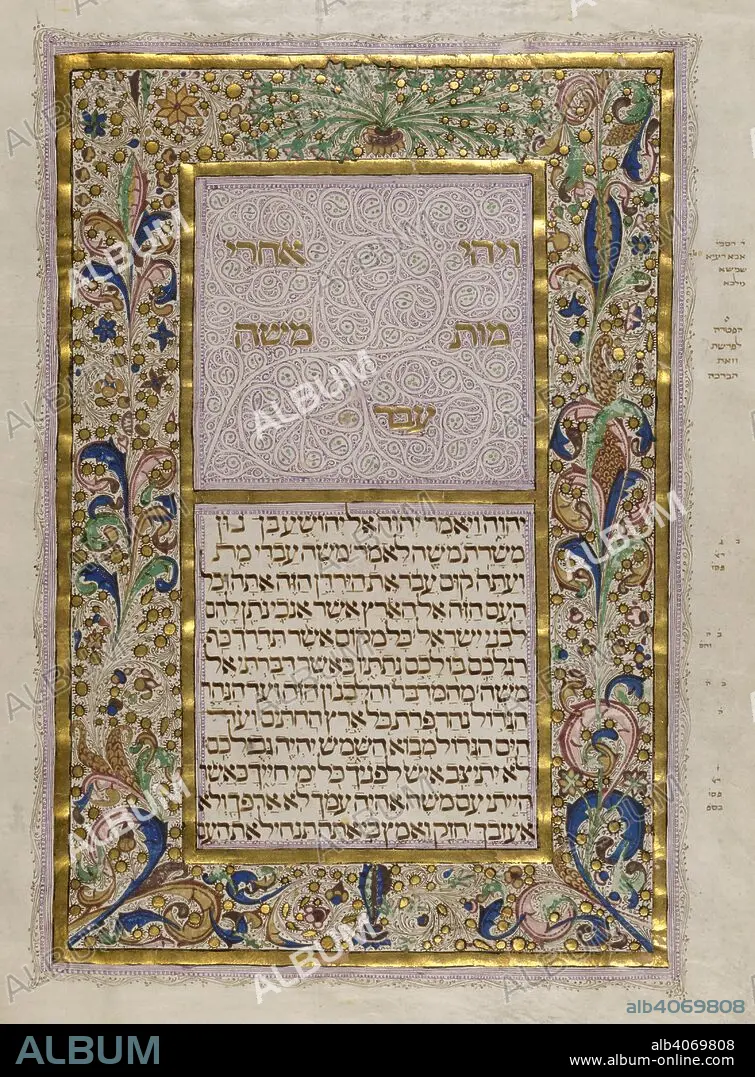 ויהי אחרי
מות משה
עבד
יהוה ויאמר יהוה אל יהושע בן נון
משרת משה לאמר משה עבדי מת
ועתה קום עבר את הירדן הזה אתה וכל
העם הזה אל הארץ אשר אנכי נתן להם
לבני ישראל כל מקום אשר תדרך כף
רגלכם בו לכם נתתיו כאשר דברתי אל
משה מהמדבר והלבנון הזה ועד הנהר
הגדול נהר פרת כל ארץ החתים ועד
הים הגדול מבוא השמש יהיה גבולכם
לא יתיצב איש לפניך כל ימי חייך כאשר
הייתי עם משה אהיה עמך לא ארפך ולא
אעזבך חזק ואמץ כי אתה תנחיל את העם
הפטרה
לפרשת
וזאת
הברכה
ALBUM
alb4069808
ALBUM
alb4069808
www.album-online.com